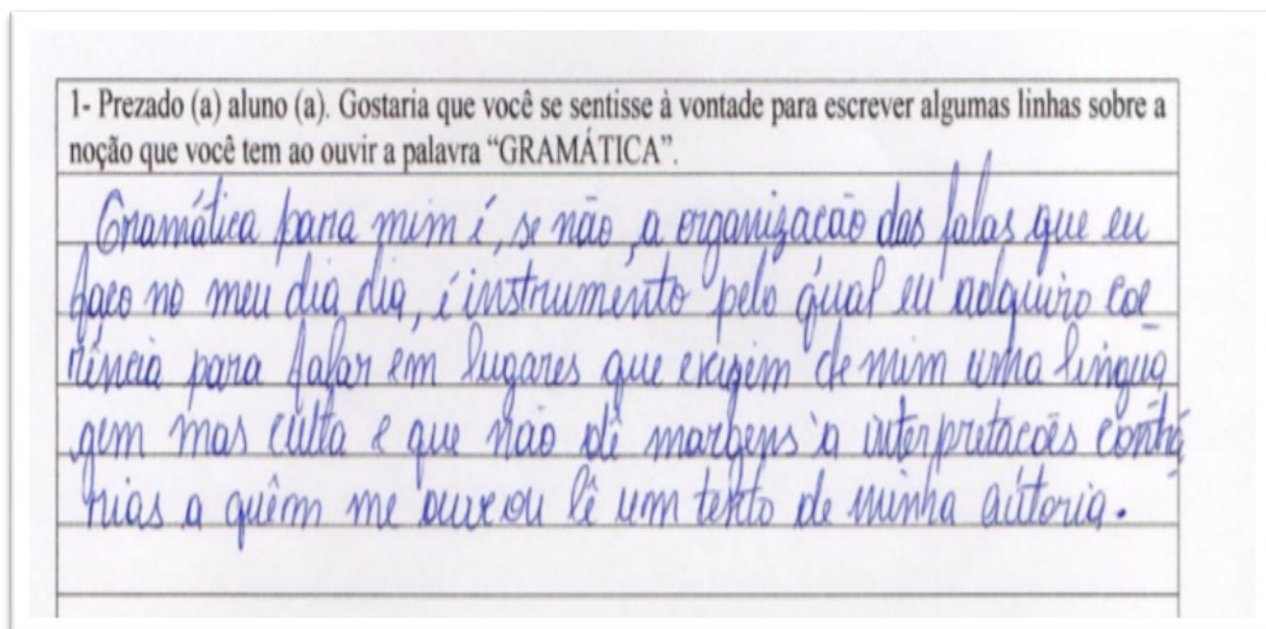 1- Prezado (a) aluno (a). Gostaria que você se sentisse à vontade para escrever algumas linhas sobre a
noção que você tem ao ouvir a palavra “GRAMÁTICA”.
Gramática para mim é, se não, a organização das falas que eu
faço no meu dia dia, é instrumento pelo qual eu adquiro coe
rência para falar em lugares que exigem de mim uma lingua
gem mas culta e que não dê margens à interpretacões contrá
rias a quêm me ouve ou lê um texto de minha autoria.